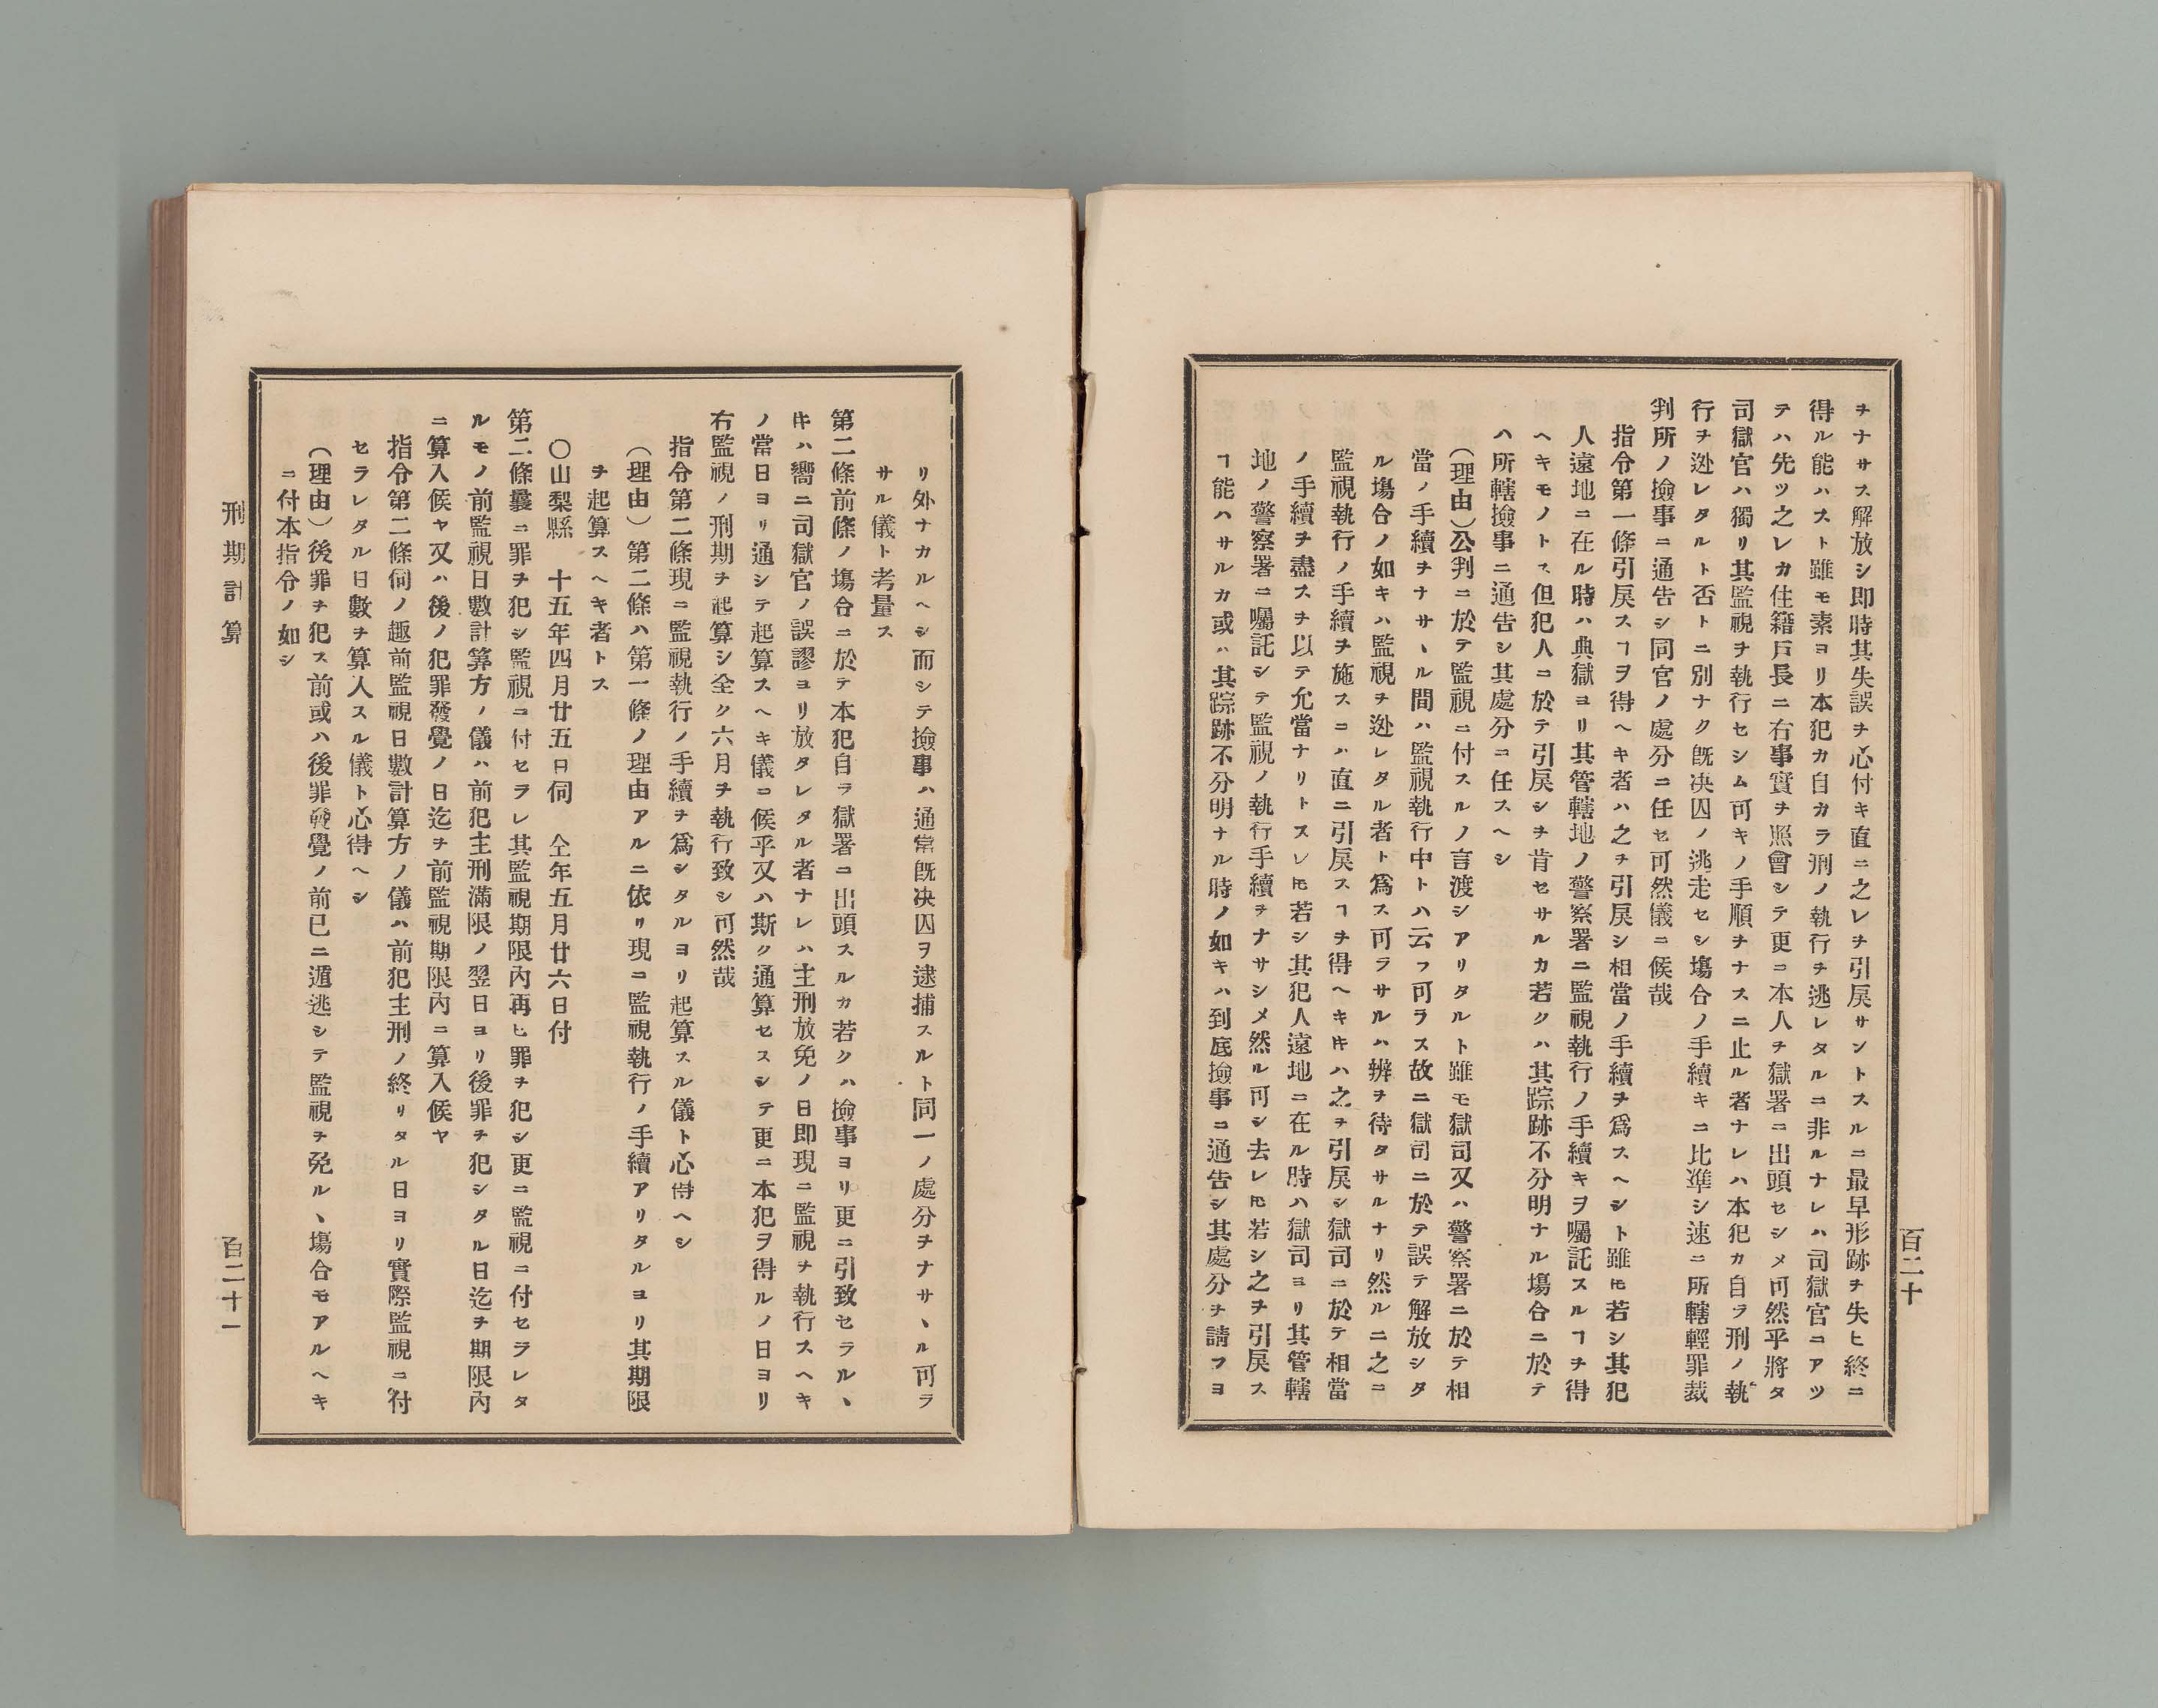 百二十
ヲナサス解放シ即時其失誤ヲ心付キ直ニ之レヲ引戻サントスルニ最早形跡ヲ失ヒ終ニ
得ル能ハスト雖モ素ヨリ本犯カ自カラ刑ノ執行ヲ逃レタルニ非ルナレハ司獄官ニアツ
テハ先ツ之レカ住籍戸長ニ右事實ヲ照會シテ更ニ本人ヲ獄署ニ出頭セシメ可然乎將タ
司獄官ハ獨リ其監視ヲ執行セシム可キノ手順ヲナスニ止ル者ナレハ本犯カ自ラ刑ノ執
行ヲ逊レタルト否トニ別ナク既决囚ノ逃走セシ塲合ノ手續キニ比準シ速ニ所轄輕罪裁
判所ノ撿事ニ通告シ同官ノ處分ニ任セ可然儀ニ候哉
指令第一條引戻スヿヲ得ヘキ者ハ之ヲ引戻シ相當ノ手續ヲ爲スヘシト雖𪜈若シ其犯
人遠地ニ在ル時ハ典獄ヨリ其管轄地ノ警察署ニ監視執行ノ手續キヲ囑託スルヿヲ得
ヘキモノトス但犯人ニ於テ引戻シヲ肯セサルカ若クハ其踪跡不分明ナル塲合ニ於テ
ハ所轄撿事ニ通告シ其處分ニ任スヘシ
（理由）公判ニ於テ監視ニ付スルノ言渡シアリタルト雖モ獄司又ハ警察署ニ於テ相
當ノ手續ヲナサヽル間ハ監視執行中トハ云フ可ラス故ニ獄司ニ於テ誤テ解放シタ
ル塲合ノ如キハ監視ヲ逊レタル者ト爲ス可ラサルハ辨ヲ待タサルナリ然ルニ之ニ
監視執行ノ手續ヲ施スニハ直ニ引戻スヿヲ得ヘキ𪜈ハ之ヲ引戻シ獄司ニ於テ相當
ノ手續ヲ盡スヲ以テ允當ナリトスレ𪜈若シ其犯人遠地ニ在ル時ハ獄司ヨリ其管轄
地ノ警察署ニ囑託シテ監視ノ執行手續ヲナサシメ然ル可シ去レ𪜈若シ之ヲ引戻ス
ヿ能ハサルカ或ハ其踪跡不分明ナル時ノ如キハ到底撿事ニ通告シ其處分ヲ請フヨ
リ外ナカルヘシ而シテ撿事ハ通常既决囚ヲ逮捕スルト同一ノ處分ヲナサヽル可ラ
サル儀ト考量ス
第二條前條ノ塲合ニ於テ本犯自ラ獄署ニ出頭スルカ若クハ撿事ヨリ更ニ引致セラルヽ
𪜈ハ嚮ニ司獄官ノ誤謬ヨリ放タレタル者ナレハ主刑放免ノ日即現ニ監視ヲ執行スヘキ
ノ當日ヨリ通シテ起算スヘキ儀ニ候乎又ハ斯ク通算セスシテ更ニ本犯ヲ得ルノ日ヨリ
右監視ノ刑期ヲ起算シ全ク六月ヲ執行致シ可然哉
指令第二條現ニ監視執行ノ手續ヲ爲シタルヨリ起算スル儀ト心得ヘシ
（理由）第二條ハ第一條ノ理由アルニ依リ現ニ監視執行ノ手續アリタルヨリ其期限
ヲ起算スヘキ者トス
〇山梨縣　十五年四月廿五日伺　仝年五月廿六日付
第二條曩ニ罪ヲ犯シ監視ニ付セラレ其監視期限内再ヒ罪ヲ犯シ更ニ監視ニ付セラレタ
ルモノ前監視日數計算方ノ儀ハ前犯主刑滿限ノ翌日ヨリ後罪ヲ犯シタル日迄ヲ期限内
ニ算入候ヤ又ハ後ノ犯罪發覺ノ日迄ヲ前監視期限内ニ算入候ヤ
指令第二條伺ノ趣前監視日數計算方ノ儀ハ前犯主刑ノ終リタル日ヨリ實際監視ニ付
セラレタル日數ヲ算入スル儀ト心得ヘシ
（理由）後罪ヲ犯ス前或ハ後罪發覺ノ前已ニ遁逃シテ監視ヲ免ルヽ塲合モアルヘキ
ニ付本指令ノ如シ
刑期計算
百二十一